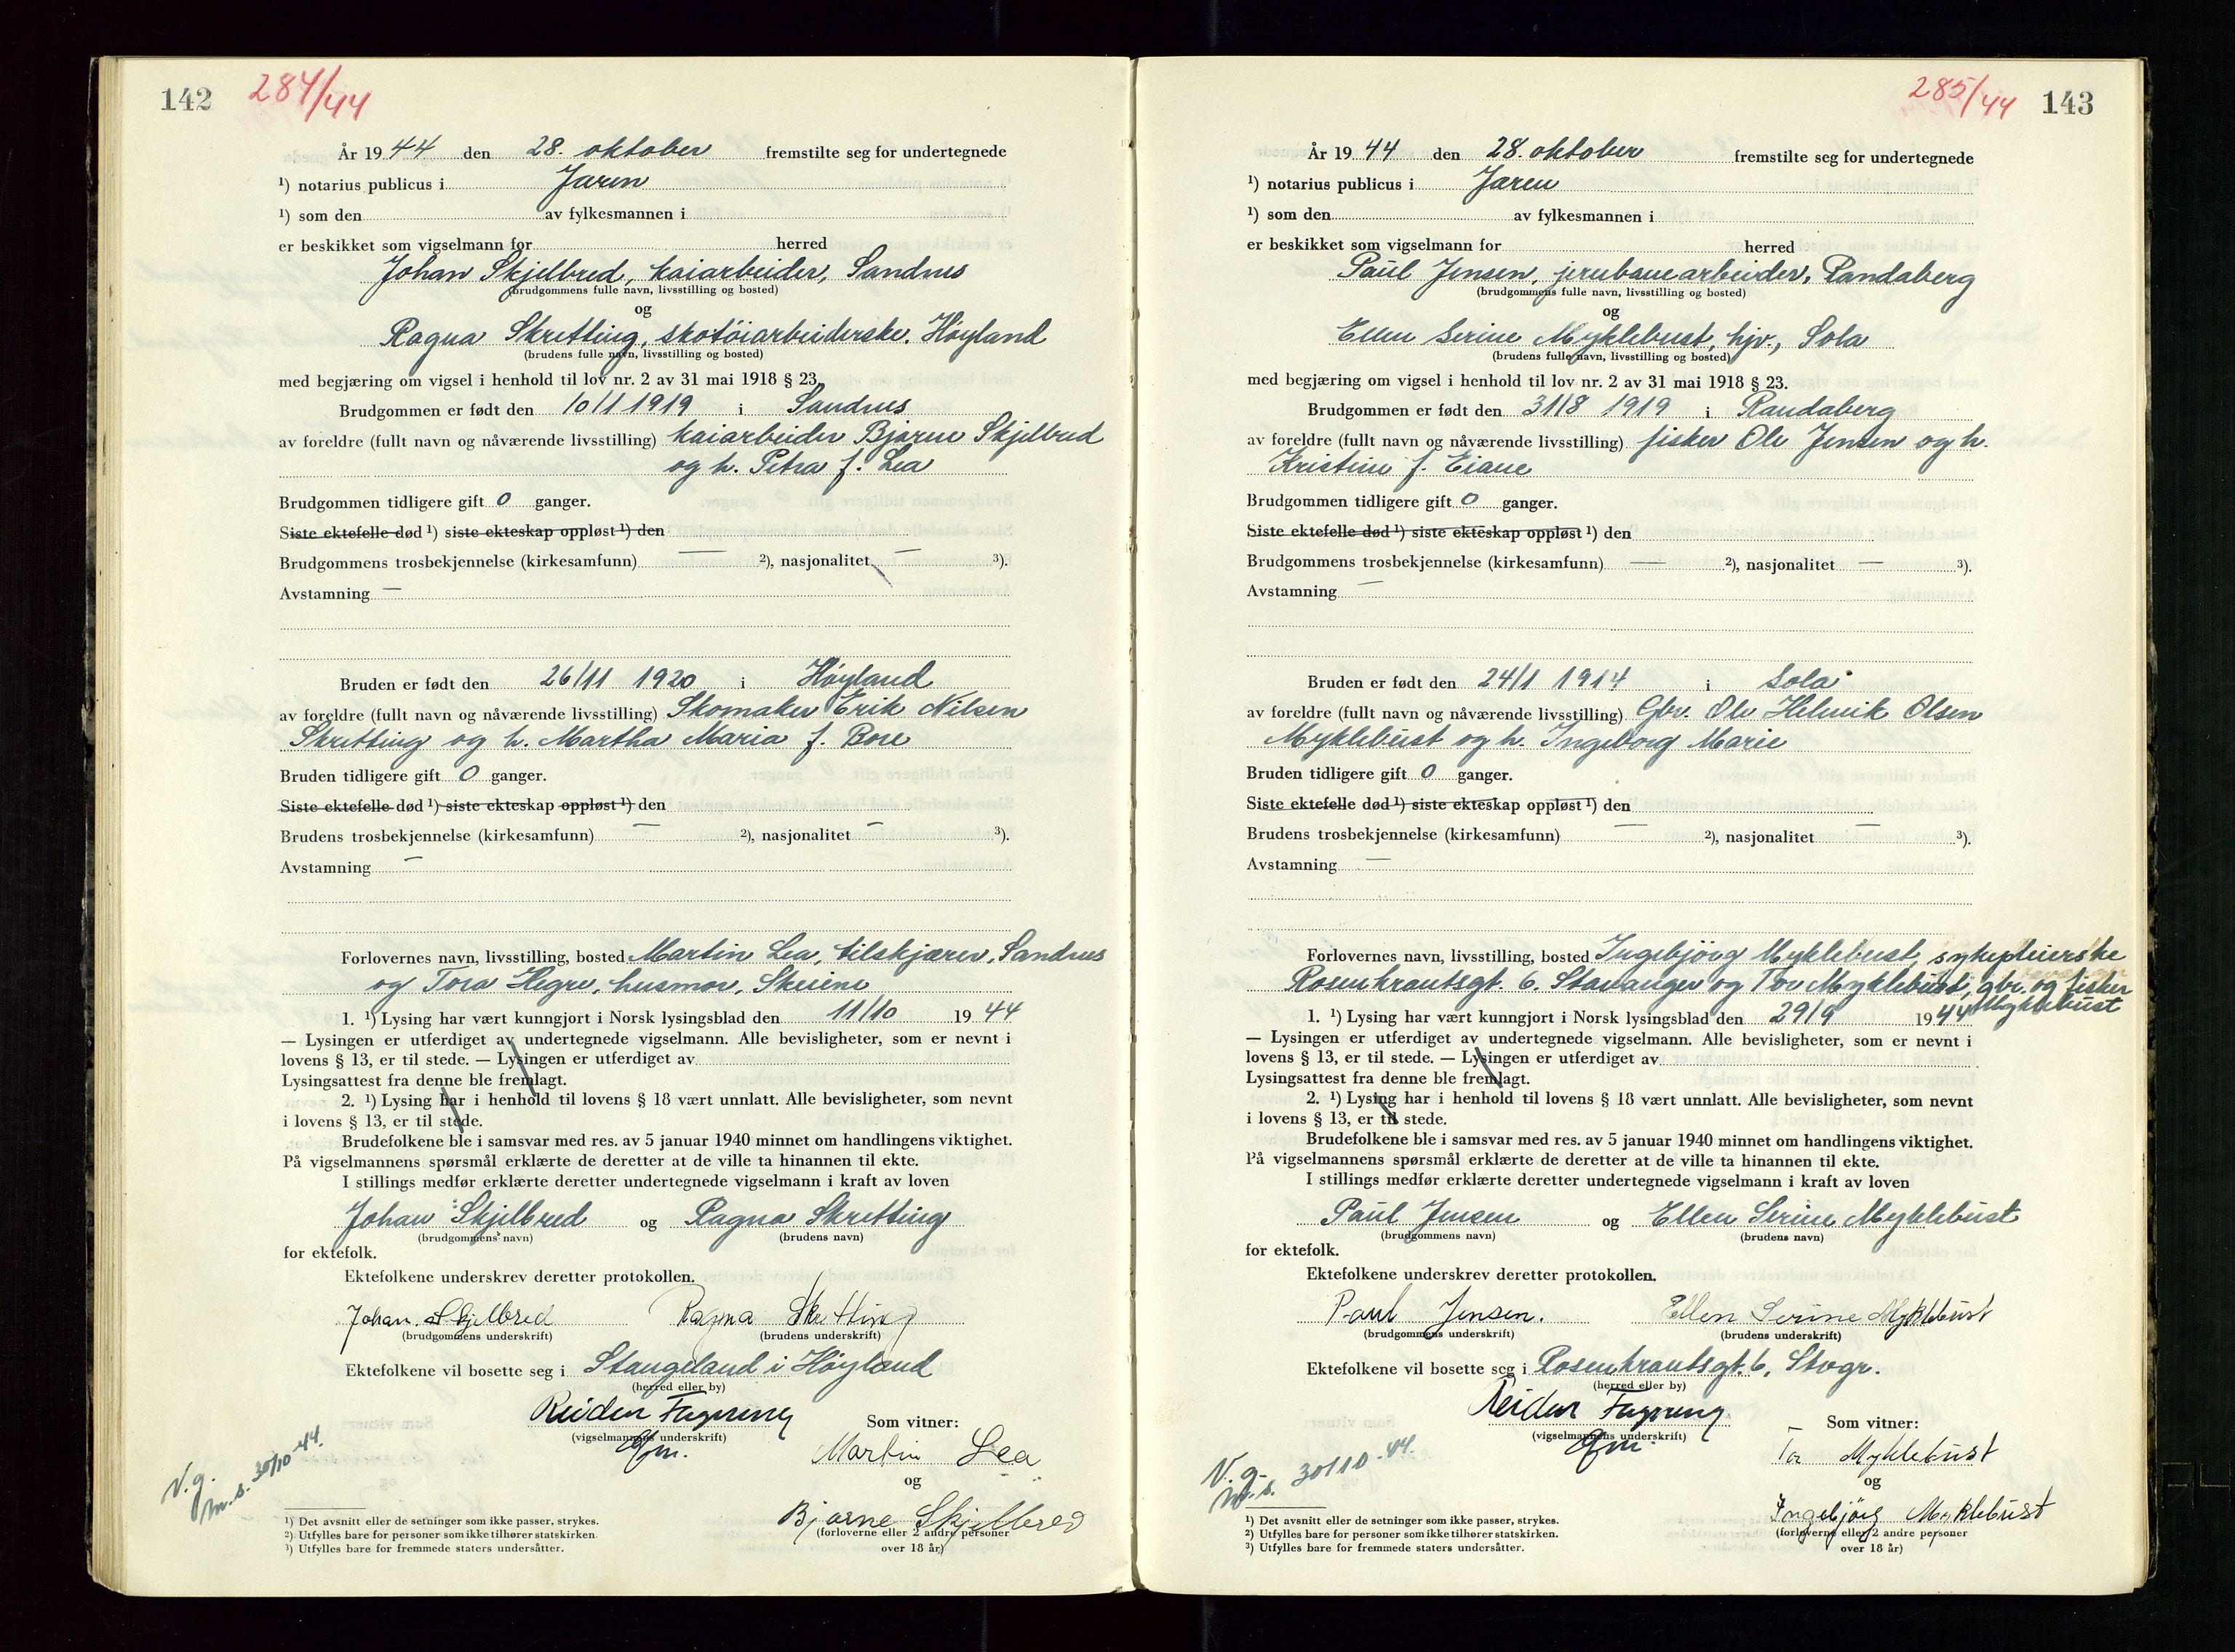 142 284/44
År 1944 den 28. oktober fremstilte seg for undertegnede
¹) notarius publicus i Jæren
¹) som den av fylkesmannen i
er beskikket som vigselmann for herred
Johan Skjelbred, kaiarbeider, Sandnes
(brudgommens fulle navn, livsstilling og bosted)
og
Ragna Skretting, skotöiarbeiderske, Høyland
(brudens fulle navn, livsstilling og bosted)
med begjæring om vigsel i henhold til lov nr. 2 av 31 mai 1918 § 23.
Brudgommen er født den 10/1 1919 i Sandnes
av foreldre (fullt navn og nåværende livsstilling) kaiarbeider Bjarne Skjelbred
og h. Petra f. Lea
Brudgommen tidligere gift 0 ganger.
Siste ektefelle død ¹) siste ekteskap oppløst ¹) den
Brudgommens trosbekjennelse (kirkesamfunn) — ²), nasjonalitet — ³).
Avstamning —
Bruden er født den 26/11 1920 i Høyland
av foreldre (fullt navn og nåværende livsstilling) Skomaker Erik Nilsen
Skretting og h. Martha Maria f. Bore
Bruden tidligere gift 0 ganger.
Siste ektefelle død ¹) siste ekteskap oppløst ¹) den
Brudens trosbekjennelse (kirkesamfunn) — ²), nasjonalitet — ³).
Avstamning —
Forlovernes navn, livsstilling, bosted Martin Lea, tilskjærer, Sandnes
og Tora Hegre, husmor, Skeiene
1. ¹) Lysing har vært kunngjort i Norsk lysingsblad den 11/10 1944
— Lysingen er utferdiget av undertegnede vigselmann. Alle bevisligheter, som er nevnt i
lovens § 13, er til stede. — Lysingen er utferdiget av
Lysingsattest fra denne ble fremlagt.
2. ¹) Lysing har i henhold til lovens § 18 vært unnlatt. Alle bevisligheter, som nevnt
i lovens § 13, er til stede.
Brudefolkene ble i samsvar med res. av 5 januar 1940 minnet om handlingens viktighet.
På vigselmannens spørsmål erklærte de deretter at de ville ta hinannen til ekte.
I stillings medfør erklærte deretter undertegnede vigselmann i kraft av loven
Johan Skjelbred og Ragna Skretting
(brudgommens navn) (brudens navn)
for ektefolk.
Ektefolkene underskrev deretter protokollen.
Johan Skjelbred Ragna Skretting
(brudgommens underskrift) (brudens underskrift)
Ektefolkene vil bosette seg i Stangeland i Høyland
(herred eller by)
Reidar Fagereng
(vigselmannens underskrift)
Som vitner:
Martin Lea
og
Bjarne Skjelbred
(forloverne eller 2 andre personer
over 18 år)
V.g.
m.s. 30/10-44.
¹) Det avsnitt eller de setninger som ikke passer, strykes.
²) Utfylles bare for personer som ikke tilhører statskirken.
³) Utfylles bare for fremmede staters undersåtter.
285/44 143
År 1944 den 28. oktober fremstilte seg for undertegnede
¹) notarius publicus i Jæren
¹) som den av fylkesmannen i
er beskikket som vigselmann for herred
Paul Jensen, jernbanearbeider, Randaberg
(brudgommens fulle navn, livsstilling og bosted)
og
Ellen Serine Myklebust, hjv., Sola
(brudens fulle navn, livsstilling og bosted)
med begjæring om vigsel i henhold til lov nr. 2 av 31 mai 1918 § 23.
Brudgommen er født den 31/8 1919 i Randaberg
av foreldre (fullt navn og nåværende livsstilling) fisker Ole Jensen og h.
Kristine f. Eiane
Brudgommen tidligere gift 0 ganger.
Siste ektefelle død ¹) siste ekteskap oppløst ¹) den
Brudgommens trosbekjennelse (kirkesamfunn) — ²), nasjonalitet — ³).
Avstamning —
Bruden er født den 24/1 1914 i Sola
av foreldre (fullt navn og nåværende livsstilling) Gbr. Ole Helmik Olsen
Myklebust og h. Ingeborg Marie
Bruden tidligere gift 0 ganger.
Siste ektefelle død ¹) siste ekteskap oppløst ¹) den
Brudens trosbekjennelse (kirkesamfunn) — ²), nasjonalitet — ³).
Avstamning —
Forlovernes navn, livsstilling, bosted Ingebjörg Myklebust, sykepleierske
Rosenkrantsgt. 6. Stavanger og Tor Myklebust, gbr. og fisker
Myklebust
1. ¹) Lysing har vært kunngjort i Norsk lysingsblad den 29/9 1944
— Lysingen er utferdiget av undertegnede vigselmann. Alle bevisligheter, som er nevnt i
lovens § 13, er til stede. — Lysingen er utferdiget av
Lysingsattest fra denne ble fremlagt.
2. ¹) Lysing har i henhold til lovens § 18 vært unnlatt. Alle bevisligheter, som nevnt
i lovens § 13, er til stede.
Brudefolkene ble i samsvar med res. av 5 januar 1940 minnet om handlingens viktighet.
På vigselmannens spørsmål erklærte de deretter at de ville ta hinannen til ekte.
I stillings medfør erklærte deretter undertegnede vigselmann i kraft av loven
Paul Jensen og Ellen Serine Myklebust
(brudgommens navn) (brudens navn)
for ektefolk.
Ektefolkene underskrev deretter protokollen.
Paul Jensen. Ellen Serine Myklebust
(brudgommens underskrift) (brudens underskrift)
Ektefolkene vil bosette seg i Rosenkrantsgt. 6, Stvgr.
(herred eller by)
Reidar Fagereng
(vigselmannens underskrift)
Som vitner:
Tor Myklebust
og
Ingebjörg Myklebust
(forloverne eller 2 andre personer
over 18 år)
V.g.
m.s. 30/10-44.
¹) Det avsnitt eller de setninger som ikke passer, strykes.
²) Utfylles bare for personer som ikke tilhører statskirken.
³) Utfylles bare for fremmede staters undersåtter.